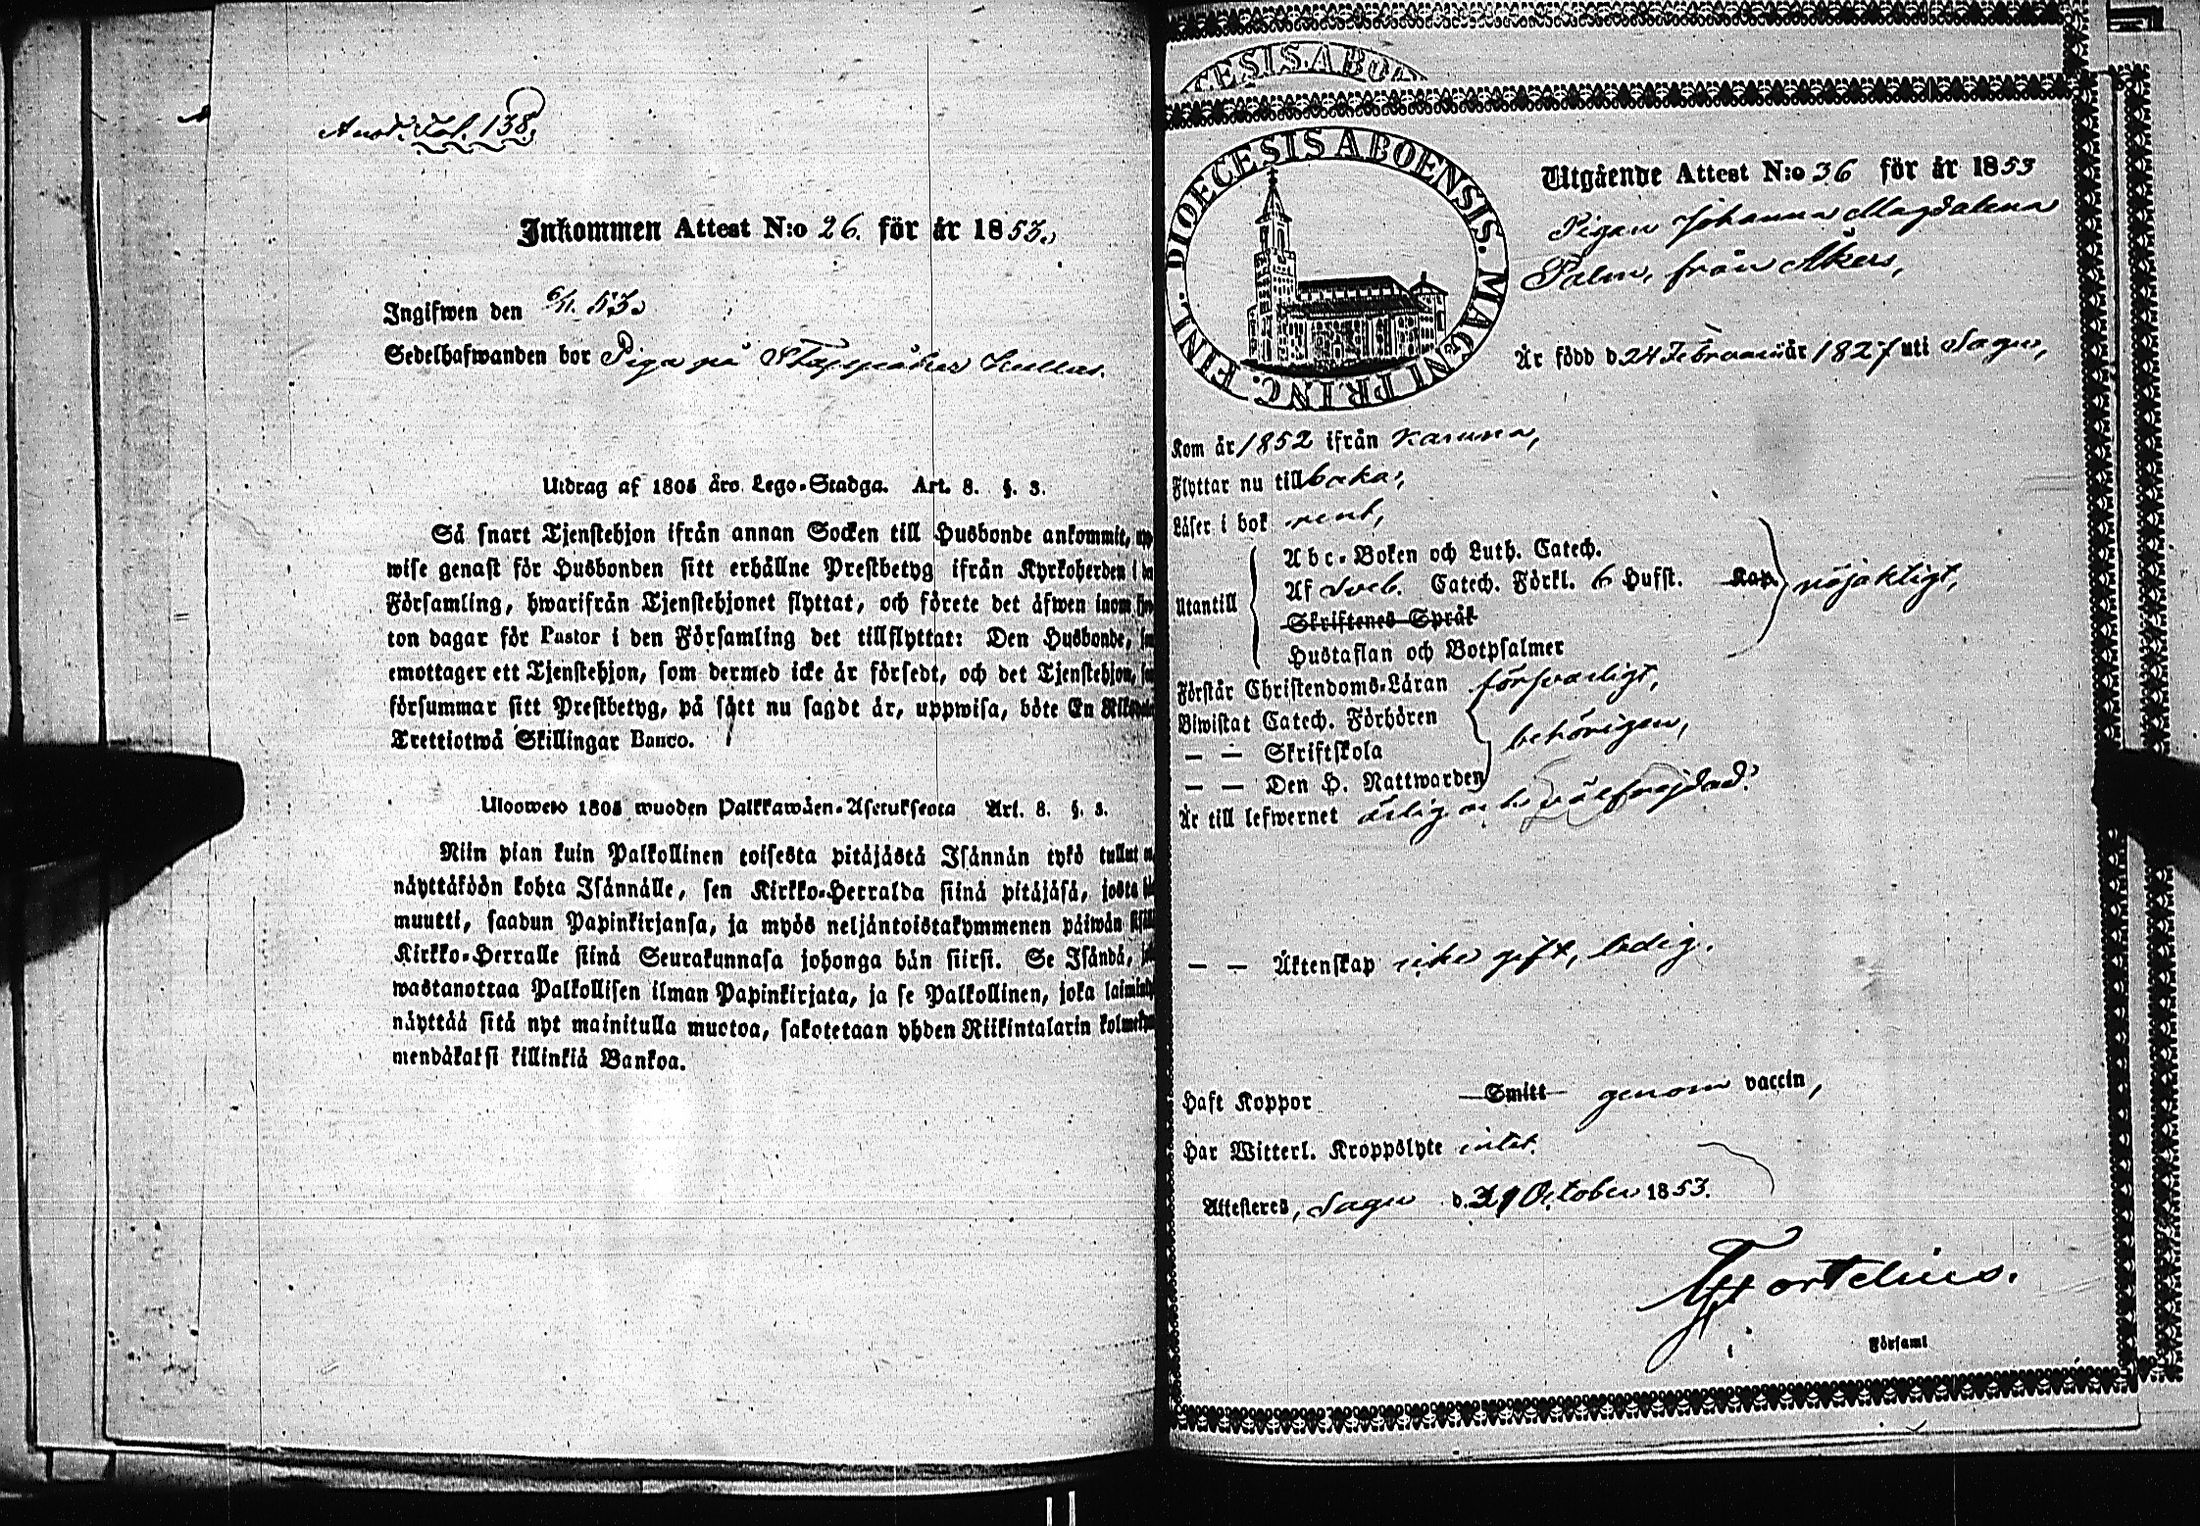 Anot. Fol. 138.
Inkommen Attest N:o 26. för år 1853.
Ingifwen den 6/11. 53.
Sedelhafwanden bor Piga på
Utdrag af 1805 års Lego-Stadga. Art. 8. §. 3.
Så snart Tjenstehjon ifrån annan Socken till Husbonde ankommit, upp
wise genast för Husbonden sitt erhållne Prestbetyg ifrån Kyrkoherden i
Församling, hwarifrån Tjenstehjonet flyttat, och förete det äfwen inom
ton dagar för Pastor i den Församling det tillflyttat: Den Husbonde,
emottager ett Tjenstehjon, som dermed icke är försedt, och det Tjenstehjon,
försummar sitt Prestbetyg, på sätt nu sagdt är, uppwisa, böte En
Trettiotwå Skillingar Banco.
Ulosweto 1805 wuoden Palkkawäen-Asetuksesta Art. 8. §. 3.
Niin pian kuin Palkollinen toisesta pitäjästä Isännän tykö tullut
näyttäköön kohta Isännälle, sen Kirkko-Herralda siinä pitäjäsä, josta
muutti, saadun Papinkirjansa, ja myös neljäntoistakymmenen päiwän
Kirkko-Herralle siinä Seurakunnasa johonga hän siirsi. Se Isändä,
wastanottaa Palkollisen ilman Papinkirjata, ja se Palkollinen, joka
näyttää sitä nyt mainitulla muotoa, sakotetaan yhden Riikintalarin
mendäkaksi killinkiä Bankoa.
CESIS ABOE
DIOECESIS ABOENSIS. MAGNI PRINC. FINL.
Utgående Attest N:o 36 för år 1853
Pigan Johanna Magdalena
Palm, från Åkers,
Är född d. 24 Februarii år 1827 uti Sagu,
Kom år 1852 ifrån Karuna,
Flyttar nu tillbaka,
Läser i bok rent,
Utantill
Abc-Boken och Luth. Catech.
Af Sveb. Catech. Förkl. 6 Hufst. Kap. nöjaktigt,
Skriftenes Språk
Hustaflan och Botpsalmer
Förstår Christendoms-Läran försvarligt,
Biwistat Catech. Förhören
— — Skriftskola behörigen,
— — Den H. Nattwarden
Är till lefwernet ärlig och välfrejdad.
— — Äktenskap icke gift, ledig.
Haft Koppor Smitt genom vaccin,
Har Witterl. Kroppslyte intet.
Attesteres, Sagu d. 31 October 1853.
Hortelius.
i Församl